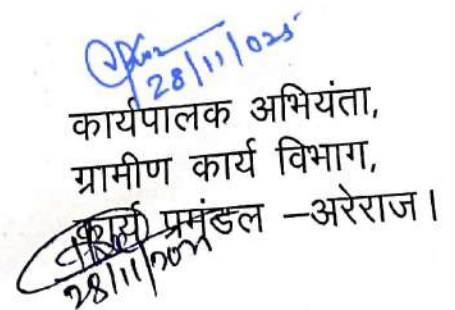 28/11/025
कार्यपालक अभियंता,
ग्रामीण कार्य विभाग,
कार्य प्रमंडल –अरेराज।
28/11/2025